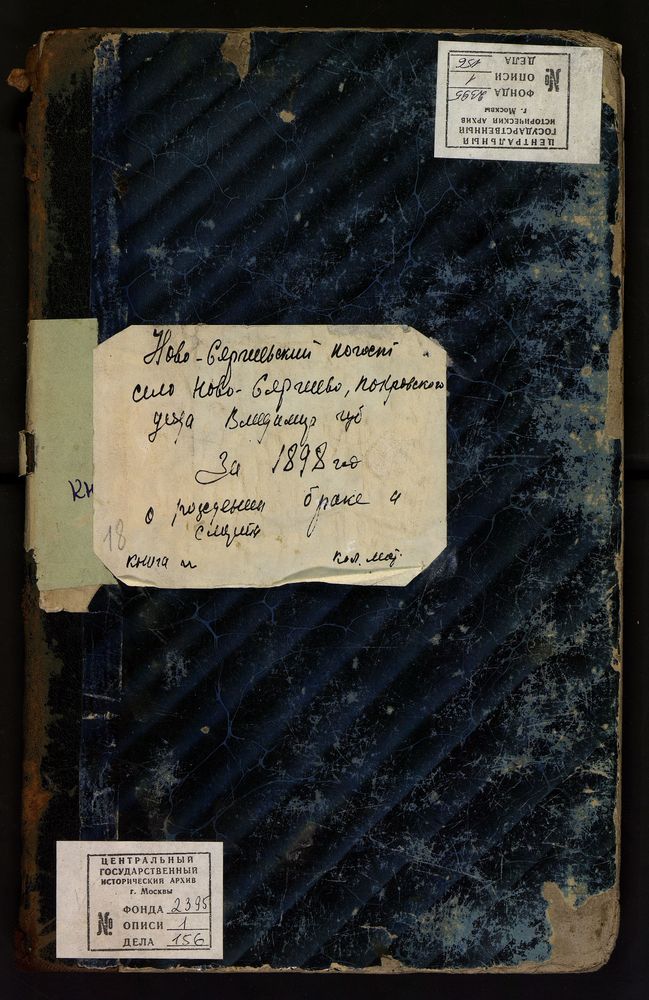 ЦЕНТРАЛЬНЫЙ
ГОСУДАРСТВЕННЫЙ
ИСТОРИЧЕСКИЙ АРХИВ
г. Москвы
ФОНДА 2395
№ ОПИСИ 1
ДЕЛА 156
Ново-Сергиевский погост
село Ново-Сергиево, Покровского
уезда Владимир губ
За 1898 год
о рождении браке и
смерти
18
книга
кол. лист.
КН
ЦЕНТРАЛЬНЫЙ
ГОСУДАРСТВЕННЫЙ
ИСТОРИЧЕСКИЙ АРХИВ
г. Москвы
ФОНДА 2395
№ ОПИСИ 1
ДЕЛА 156